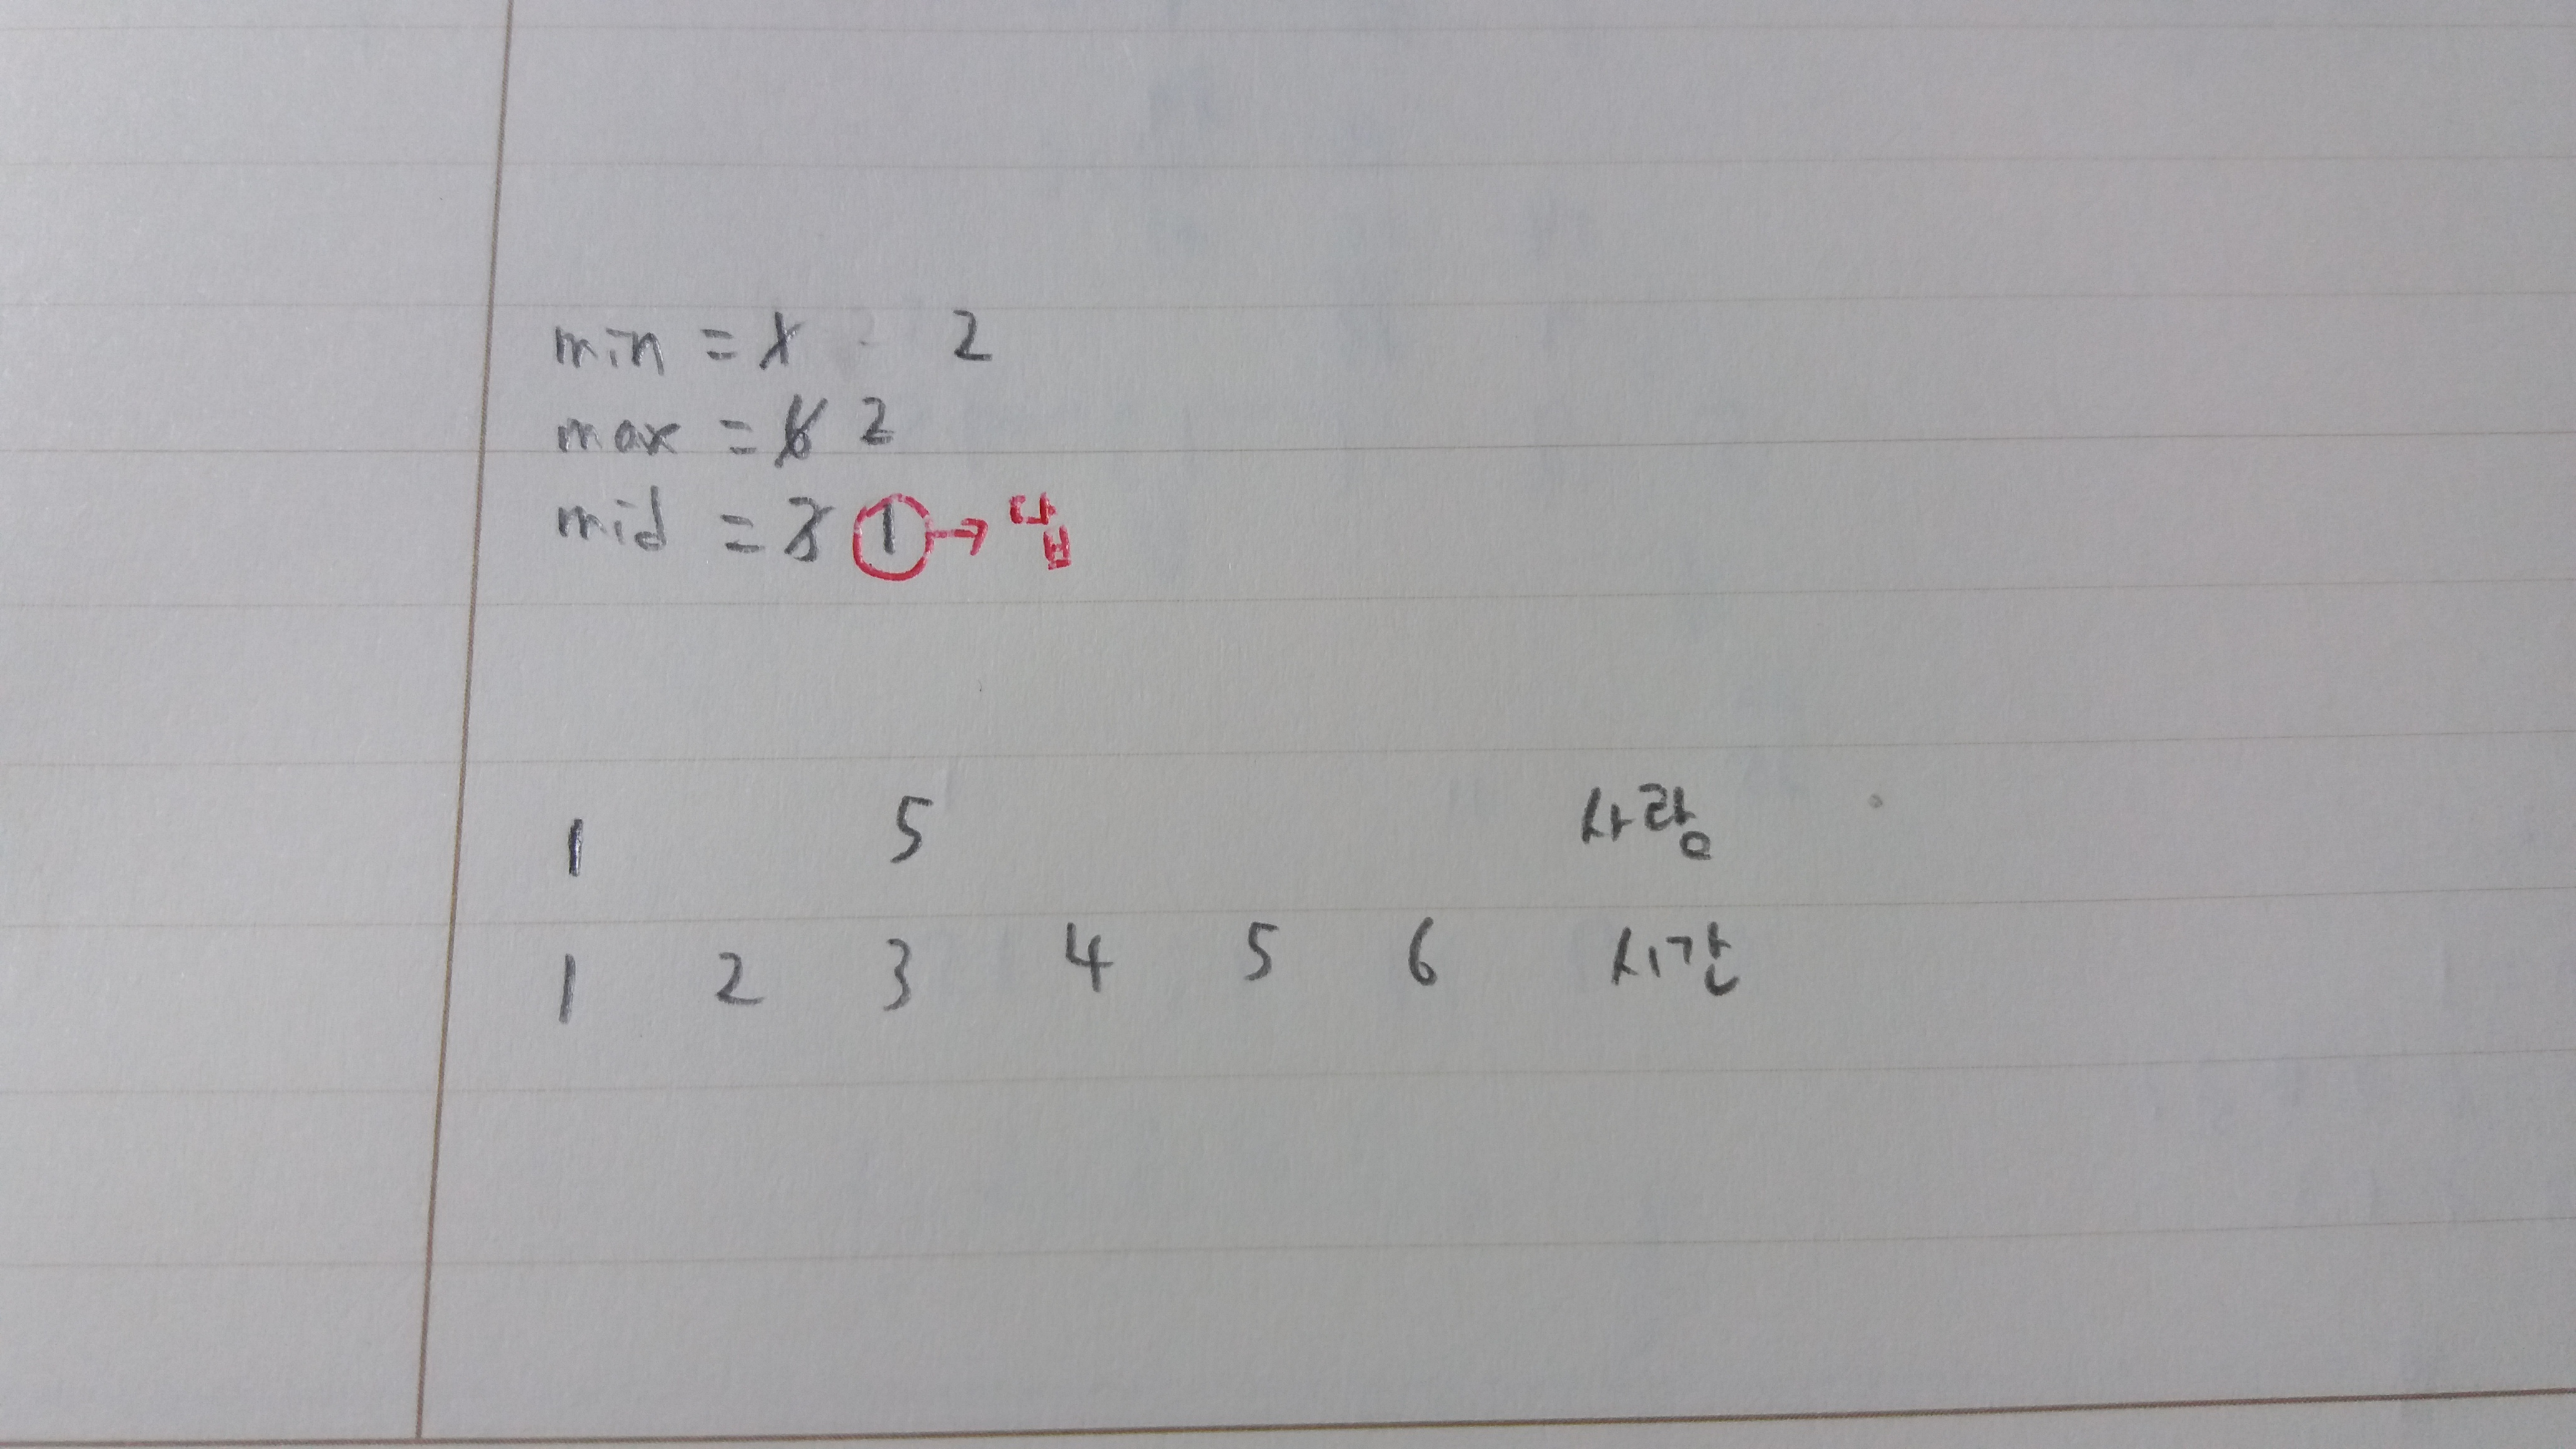 min = 1 2
max = 6 2
mid = 3 1 → 답
1 5 사람
1 2 3 4 5 6 시간